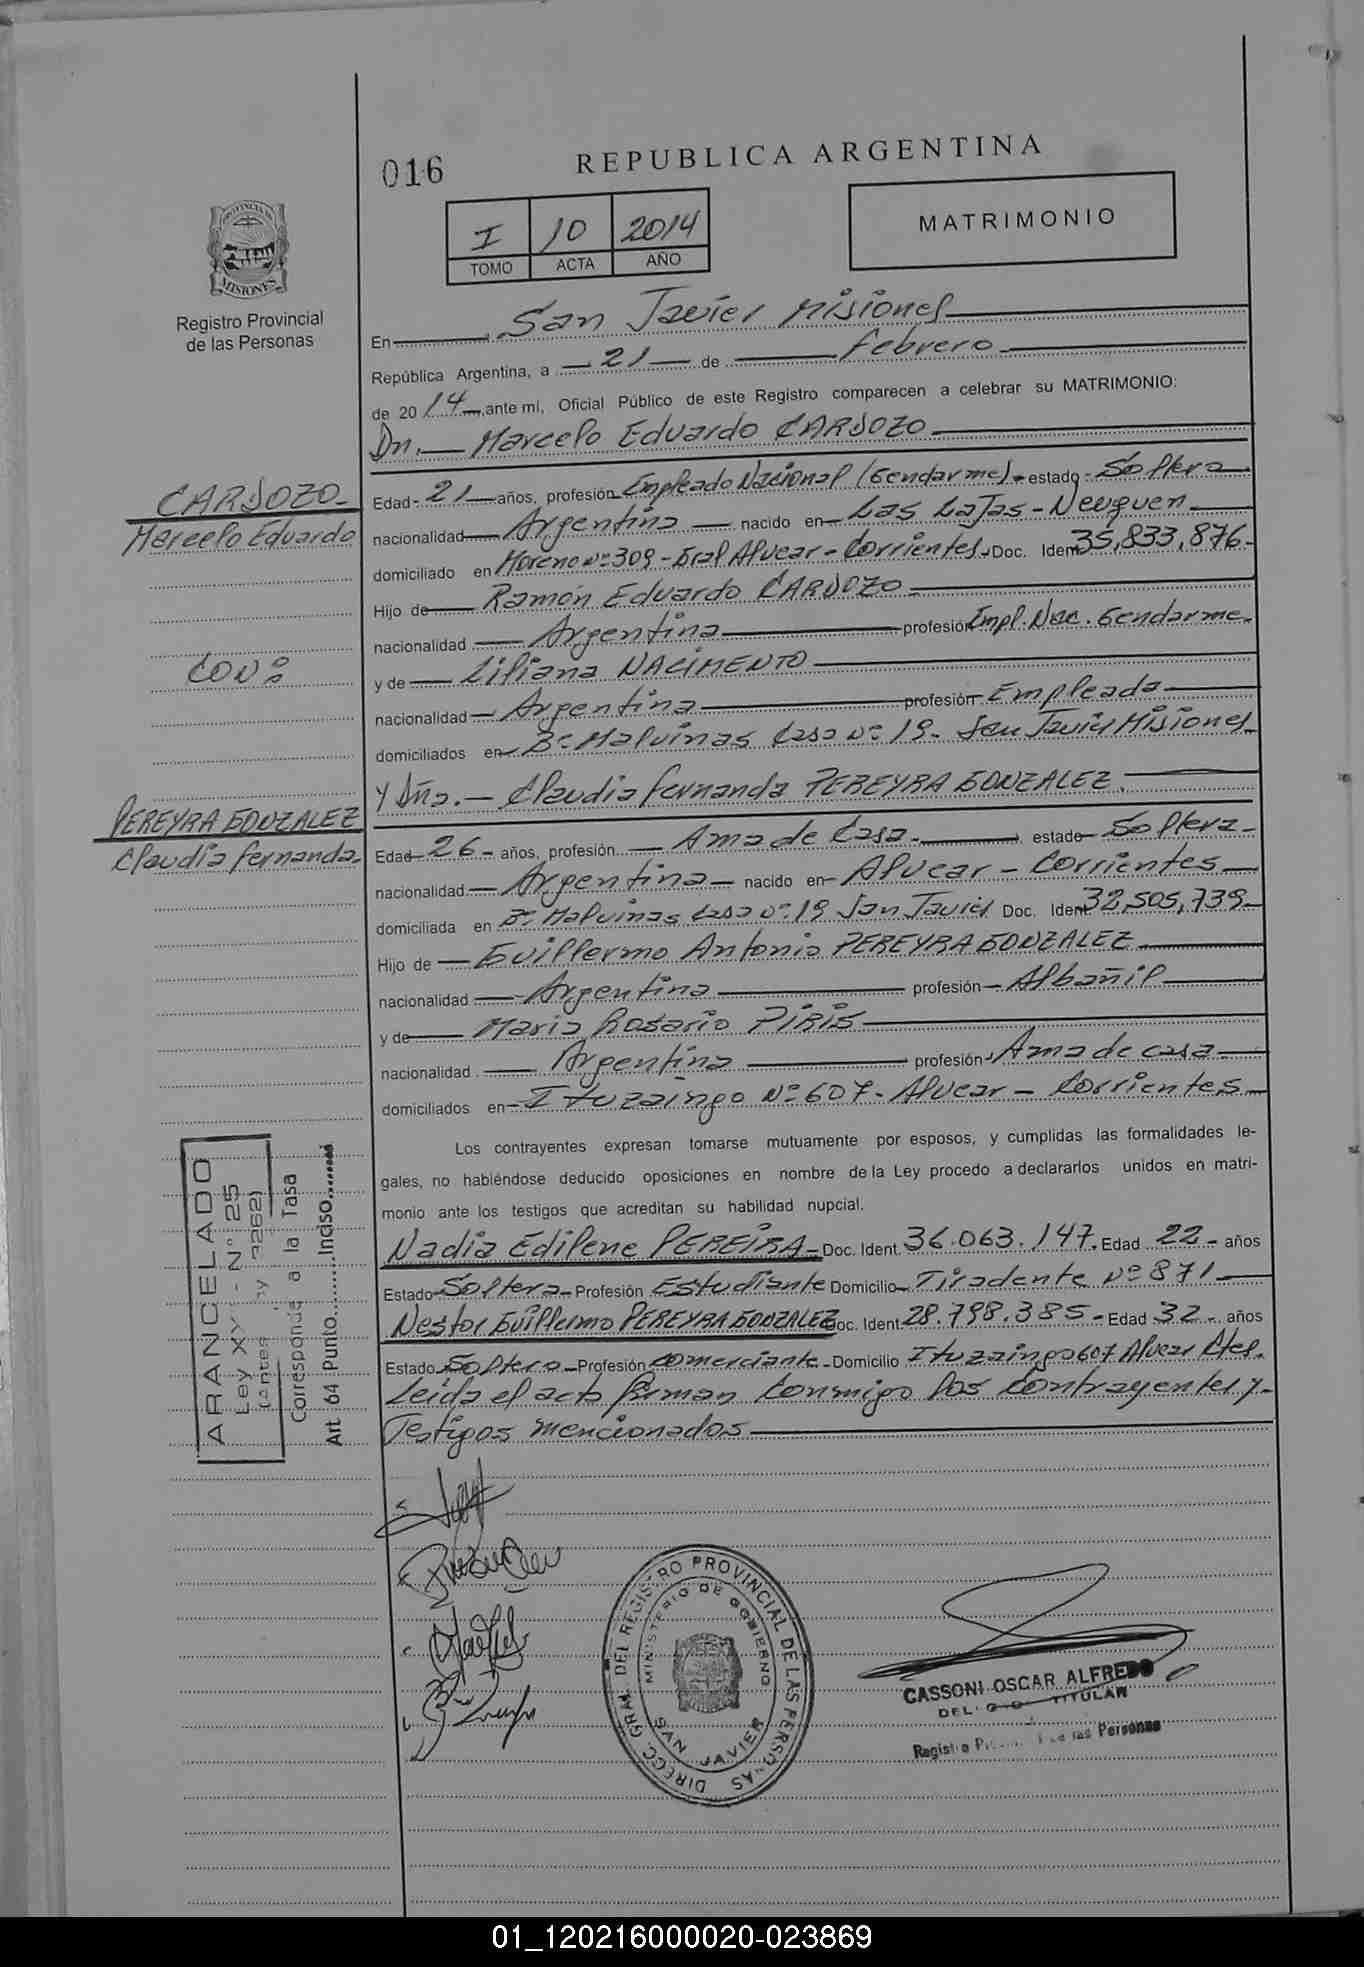 016
REPUBLICA ARGENTINA
I 10 2014
TOMO ACTA AÑO
MATRIMONIO
PROVINCIA DE MISIONES
Registro Provincial
de las Personas
En San Javier Misiones
República Argentina, a 21 de febrero
de 2014, ante mí, Oficial Público de este Registro comparecen a celebrar su MATRIMONIO:
Dn. Marcelo Eduardo CARDOZO
CARDOZO
Marcelo Eduardo
CON:
PEREYRA GONZALEZ
Claudia fernanda
Edad 21 años, profesión Empleado Nacional (Gendarme) estado Soltero
nacionalidad Argentina nacido en Las Lajas - Neuquen
domiciliado en Moreno Nº 309 - Gral Alvear - Corrientes Doc. Ident 35,833,876
Hijo de Ramón Eduardo CARDOZO
nacionalidad Argentina profesión Empl. Nac. Gendarme
y de Liliana NACIMENTO
nacionalidad Argentina profesión Empleada
domiciliados en Bº Malvinas Casa Nº 19. San Javier Misiones
Y Dña. Claudia fernanda PEREYRA GONZALEZ.
Edad 26 años, profesión Ama de Casa estado Soltera
nacionalidad Argentina nacido en Alvear - Corrientes
domiciliada en Bº Malvinas Casa Nº 19 San Javier Doc. Ident 32,505,739
Hijo de Guillermo Antonio PEREYRA GONZALEZ
nacionalidad Argentina profesión Albañil
y de Maria Rosario PIRIS
nacionalidad Argentina profesión Ama de casa
domiciliados en Ituzaingo Nº 607 - Alvear - Corrientes
Los contrayentes expresan tomarse mutuamente por esposos, y cumplidas las formalidades le-
gales, no habiéndose deducido oposiciones en nombre de la Ley procedo a declararlos unidos en matri-
monio ante los testigos que acreditan su habilidad nupcial.
Nadia Edilene PEREIRA Doc. Ident. 36.063.147. Edad 22 años
Estado Soltera Profesión Estudiante Domicilio Tiradente Nº 871
Nestor Guillermo PEREYRA GONZALEZ Doc. Ident. 28.798.385 Edad 32 años
Estado Soltero Profesión Comerciante Domicilio Ituzaingo 607 Alvear Ctes.
Leida el acta firman Conmigo los Contrayentes y
Testigos mencionados
ARANCELADO
Ley XXV - Nº 25
(antes Ley 3262)
Corresponde a la Tasa
Art 64 Punto Inciso
DIRECC. GRAL. DEL REGISTRO PROVINCIAL DE LAS PERSONAS
MINISTERIO DE GOBIERNO
SAN JAVIER
CASSONI OSCAR ALFREDO
TITULAR
de las Personas
01_120216000020-023869